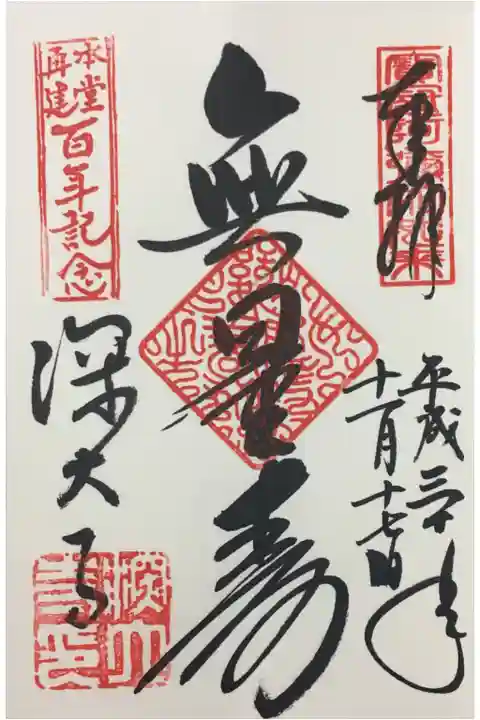 奉拝
平成三十年
十一月十七日
無量壽
本堂
再建
百年記念
深大寺